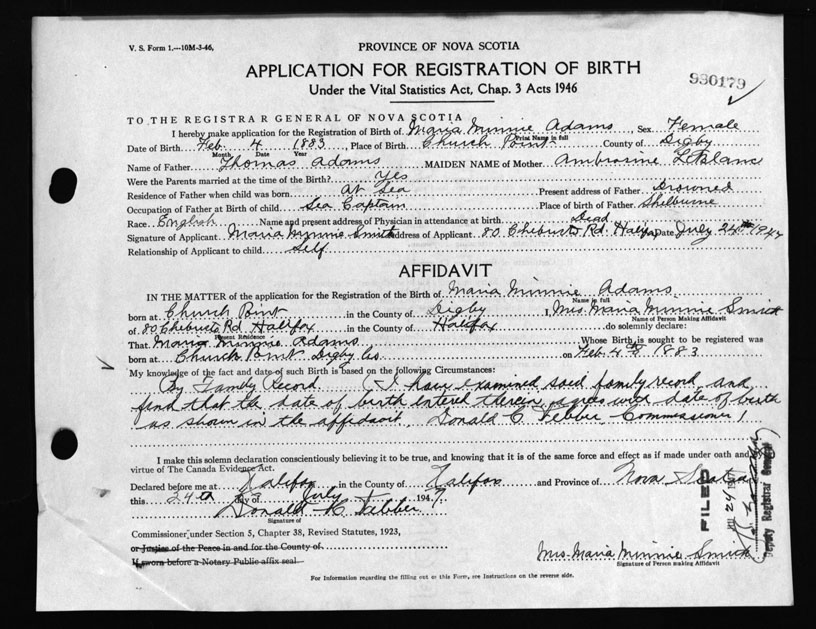 V. S. Form 1.—10M-3-46.
PROVINCE OF NOVA SCOTIA
APPLICATION FOR REGISTRATION OF BIRTH
930179
Under the Vital Statistics Act, Chap. 3 Acts 1946
TO THE REGISTRAR GENERAL OF NOVA SCOTIA
I hereby make application for the Registration of Birth of Maria Minnie Adams, Sex Female
Print Name in full
Date of Birth Feb. 4 1883, Place of Birth Church Point County of Digby
Month Date Year
Name of Father Thomas Adams MAIDEN NAME of Mother Ambrosine LeBlanc
Were the Parents married at the time of the Birth? Yes
Residence of Father when child was born At Sea Present address of Father Drowned
Occupation of Father at Birth of child Sea Captain Place of birth of Father Shelburne
Race English Name and present address of Physician in attendance at birth Dead
Signature of Applicant Maria Minnie Smith Address of Applicant 80 Chebucto Rd. Halifax Date July 24th 1947
Relationship of Applicant to child Self
AFFIDAVIT
IN THE MATTER of the application for the Registration of the Birth of Maria Minnie Adams
Name in full
born at Church Point in the County of Digby I, Mrs. Maria Minnie Smith
Name of Person Making Affidavit
of 80 Chebucto Rd Halifax in the County of Halifax do solemnly declare:
Present Residence
That Maria Minnie Adams Whose Birth is sought to be registered was
born at Church Point Digby Co on Feb. 4th 1883
My knowledge of the fact and date of such Birth is based on the following Circumstances:
By Family Record (I have examined said family record and
find that the date of birth entered therein agrees with date of birth
as shown in the affidavit. Donald C. Webber Commissioner)
I make this solemn declaration conscientiously believing it to be true, and knowing that it is of the same force and effect as if made under oath and by
virtue of The Canada Evidence Act.
Declared before me at Halifax in the County of Halifax and Province of Nova Scotia
this 24th day of July 1947
Donald C. Webber
Signature of
Commissioner under Section 5, Chapter 38, Revised Statutes, 1923,
or Justice of the Peace in and for the County of
If sworn before a Notary Public affix seal
Mrs. Maria Minnie Smith
Signature of Person making Affidavit
For Information regarding the filling out or this Form, see Instructions on the reverse side.
FILED
JUL 24 1947
Deputy Registrar General